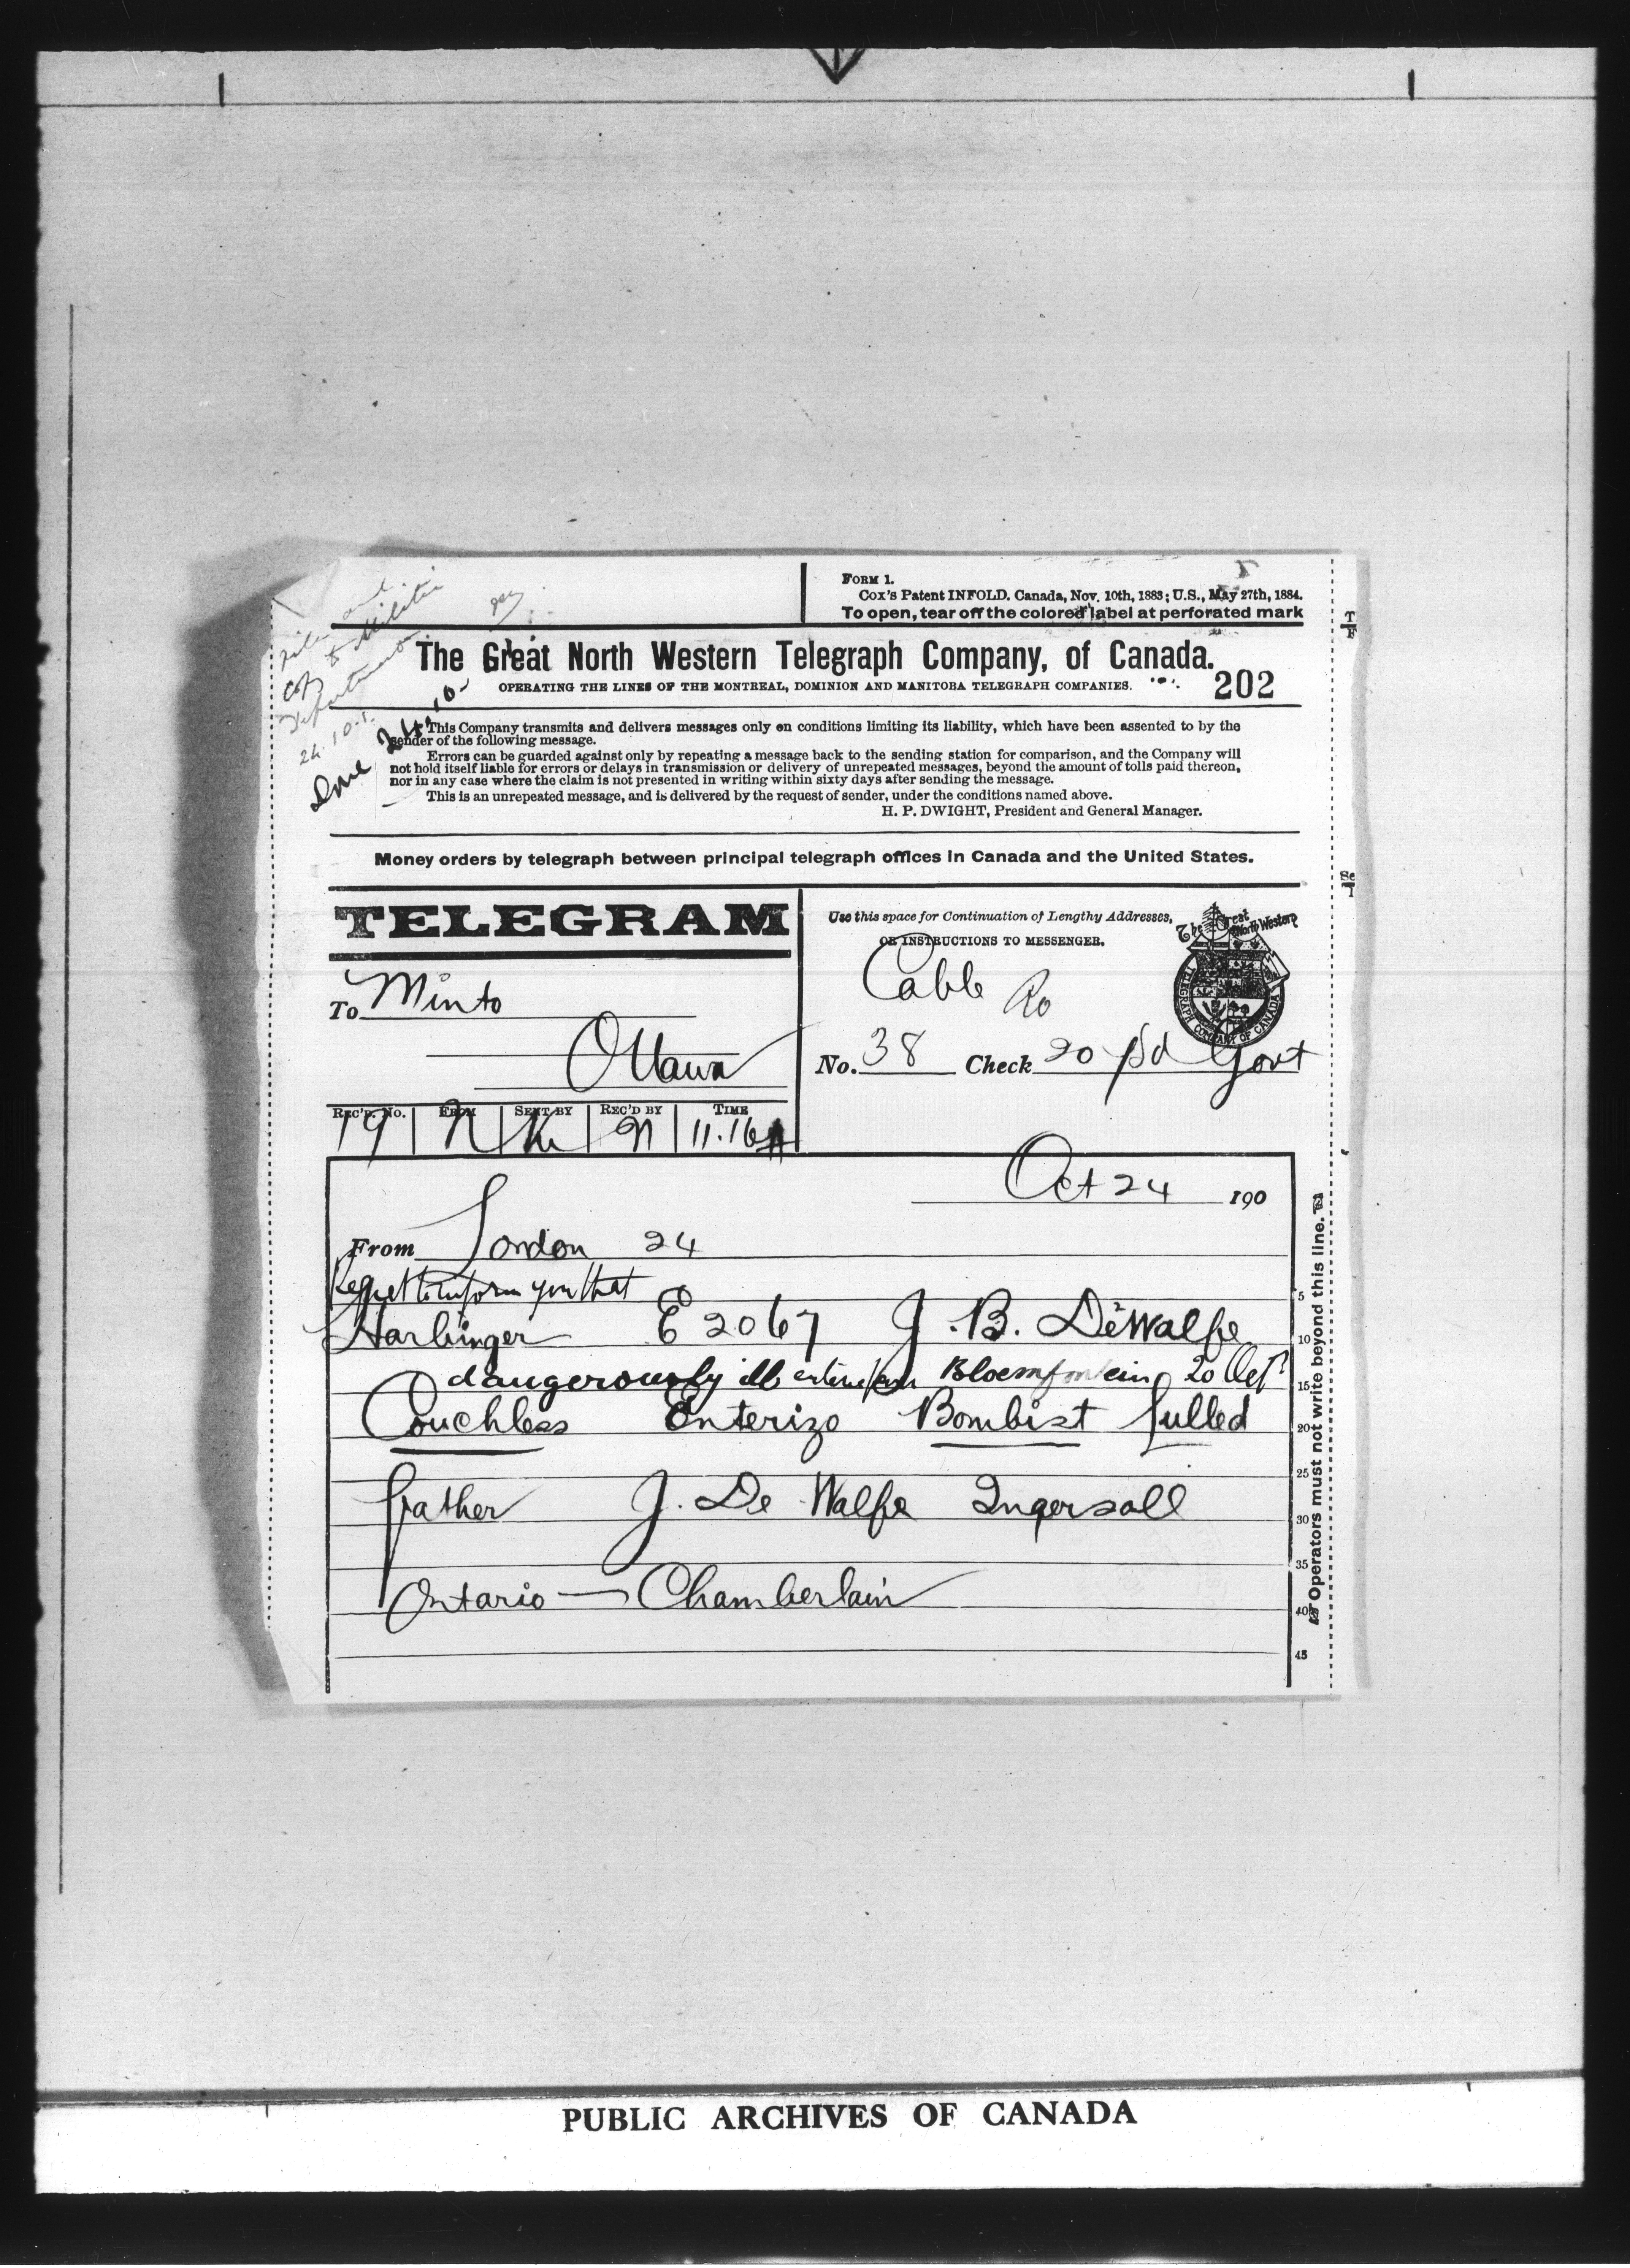 FORM 1.
Cox's Patent INFOLD. Canada, Nov. 10th, 1883; U.S., May 27th, 1884.
To open, tear off the colored label at perforated mark
file and
copy to Militia
Department
24.10.1.
Done 24.10.
The Great North Western Telegraph Company, of Canada.
OPERATING THE LINES OF THE MONTREAL, DOMINION AND MANITOBA TELEGRAPH COMPANIES.
202
This Company transmits and delivers messages only on conditions limiting its liability, which have been assented to by the
sender of the following message.
Errors can be guarded against only by repeating a message back to the sending station for comparison, and the Company will
not hold itself liable for errors or delays in transmission or delivery of unrepeated messages, beyond the amount of tolls paid thereon,
nor in any case where the claim is not presented in writing within sixty days after sending the message.
This is an unrepeated message, and is delivered by the request of sender, under the conditions named above.
H. P. DWIGHT, President and General Manager.
Money orders by telegraph between principal telegraph offices in Canada and the United States.
TELEGRAM
To Minto
Ottawa
Use this space for Continuation of Lengthy Addresses,
OR INSTRUCTIONS TO MESSENGER.
The Great North Western
TELEGRAPH COMPANY OF CANADA
Cable
No. 38 Check 20 pd Govt
REC'D. No. FROM SENT BY REC'D BY TIME
19 N N 11.16A
Oct 24 190
From London 24
Regret to inform you that
Harbinger E 2067 J. B. DeWalfe
dangerously ill enteric Bloemfontein 20 Oct
Couchless Enterizo Bombist fulled
father J. De Walfe Ingersoll
Ontario — Chamberlain
5
10
15
20
25
30
35
40
45
Operators must not write beyond this line.
PUBLIC ARCHIVES OF CANADA